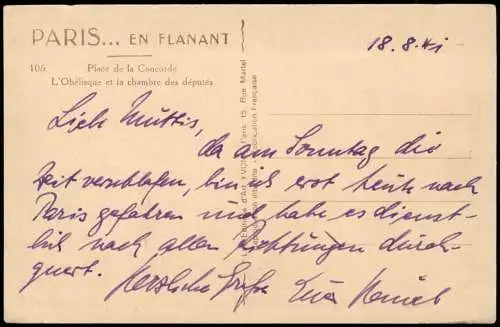 PARIS... EN FLANANT
105. Place de la Concorde
L'Obélisque et la chambre des députés
18.8.41
Liebe Muttis,
da am Sonntag die
Zeit verschlafen, bin ich erst heute nach
Paris gefahren und habe es dienst-
lich nach allen Richtungen durch-
quert. Herzliche Grüße Euer
Les Editions d'Art YVON, Paris, 15, Rue Martel
Fabrication Française